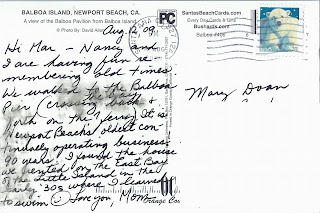 BALBOA ISLAND, NEWPORT BEACH, CA.
A view of the Balboa Pavilion from Balboa Island
© Photo By: David
Aug 2, 09
Hi Mar - Nancy and
I are having fun re-
membering old times.
We walked to the Bay
Pier (crossing back &
forth on the ferry) It is
Newport Beach's oldest con-
tinuously operating business.
90 years! I found the house
we rented on the East Bay
of the Little Island in the
early '30s where I learned
to swim Love you, MOM
PC
SantosBeachCards.com
Every Day Cards &
Bushards.com
Balboa
Mary Doan
Orange